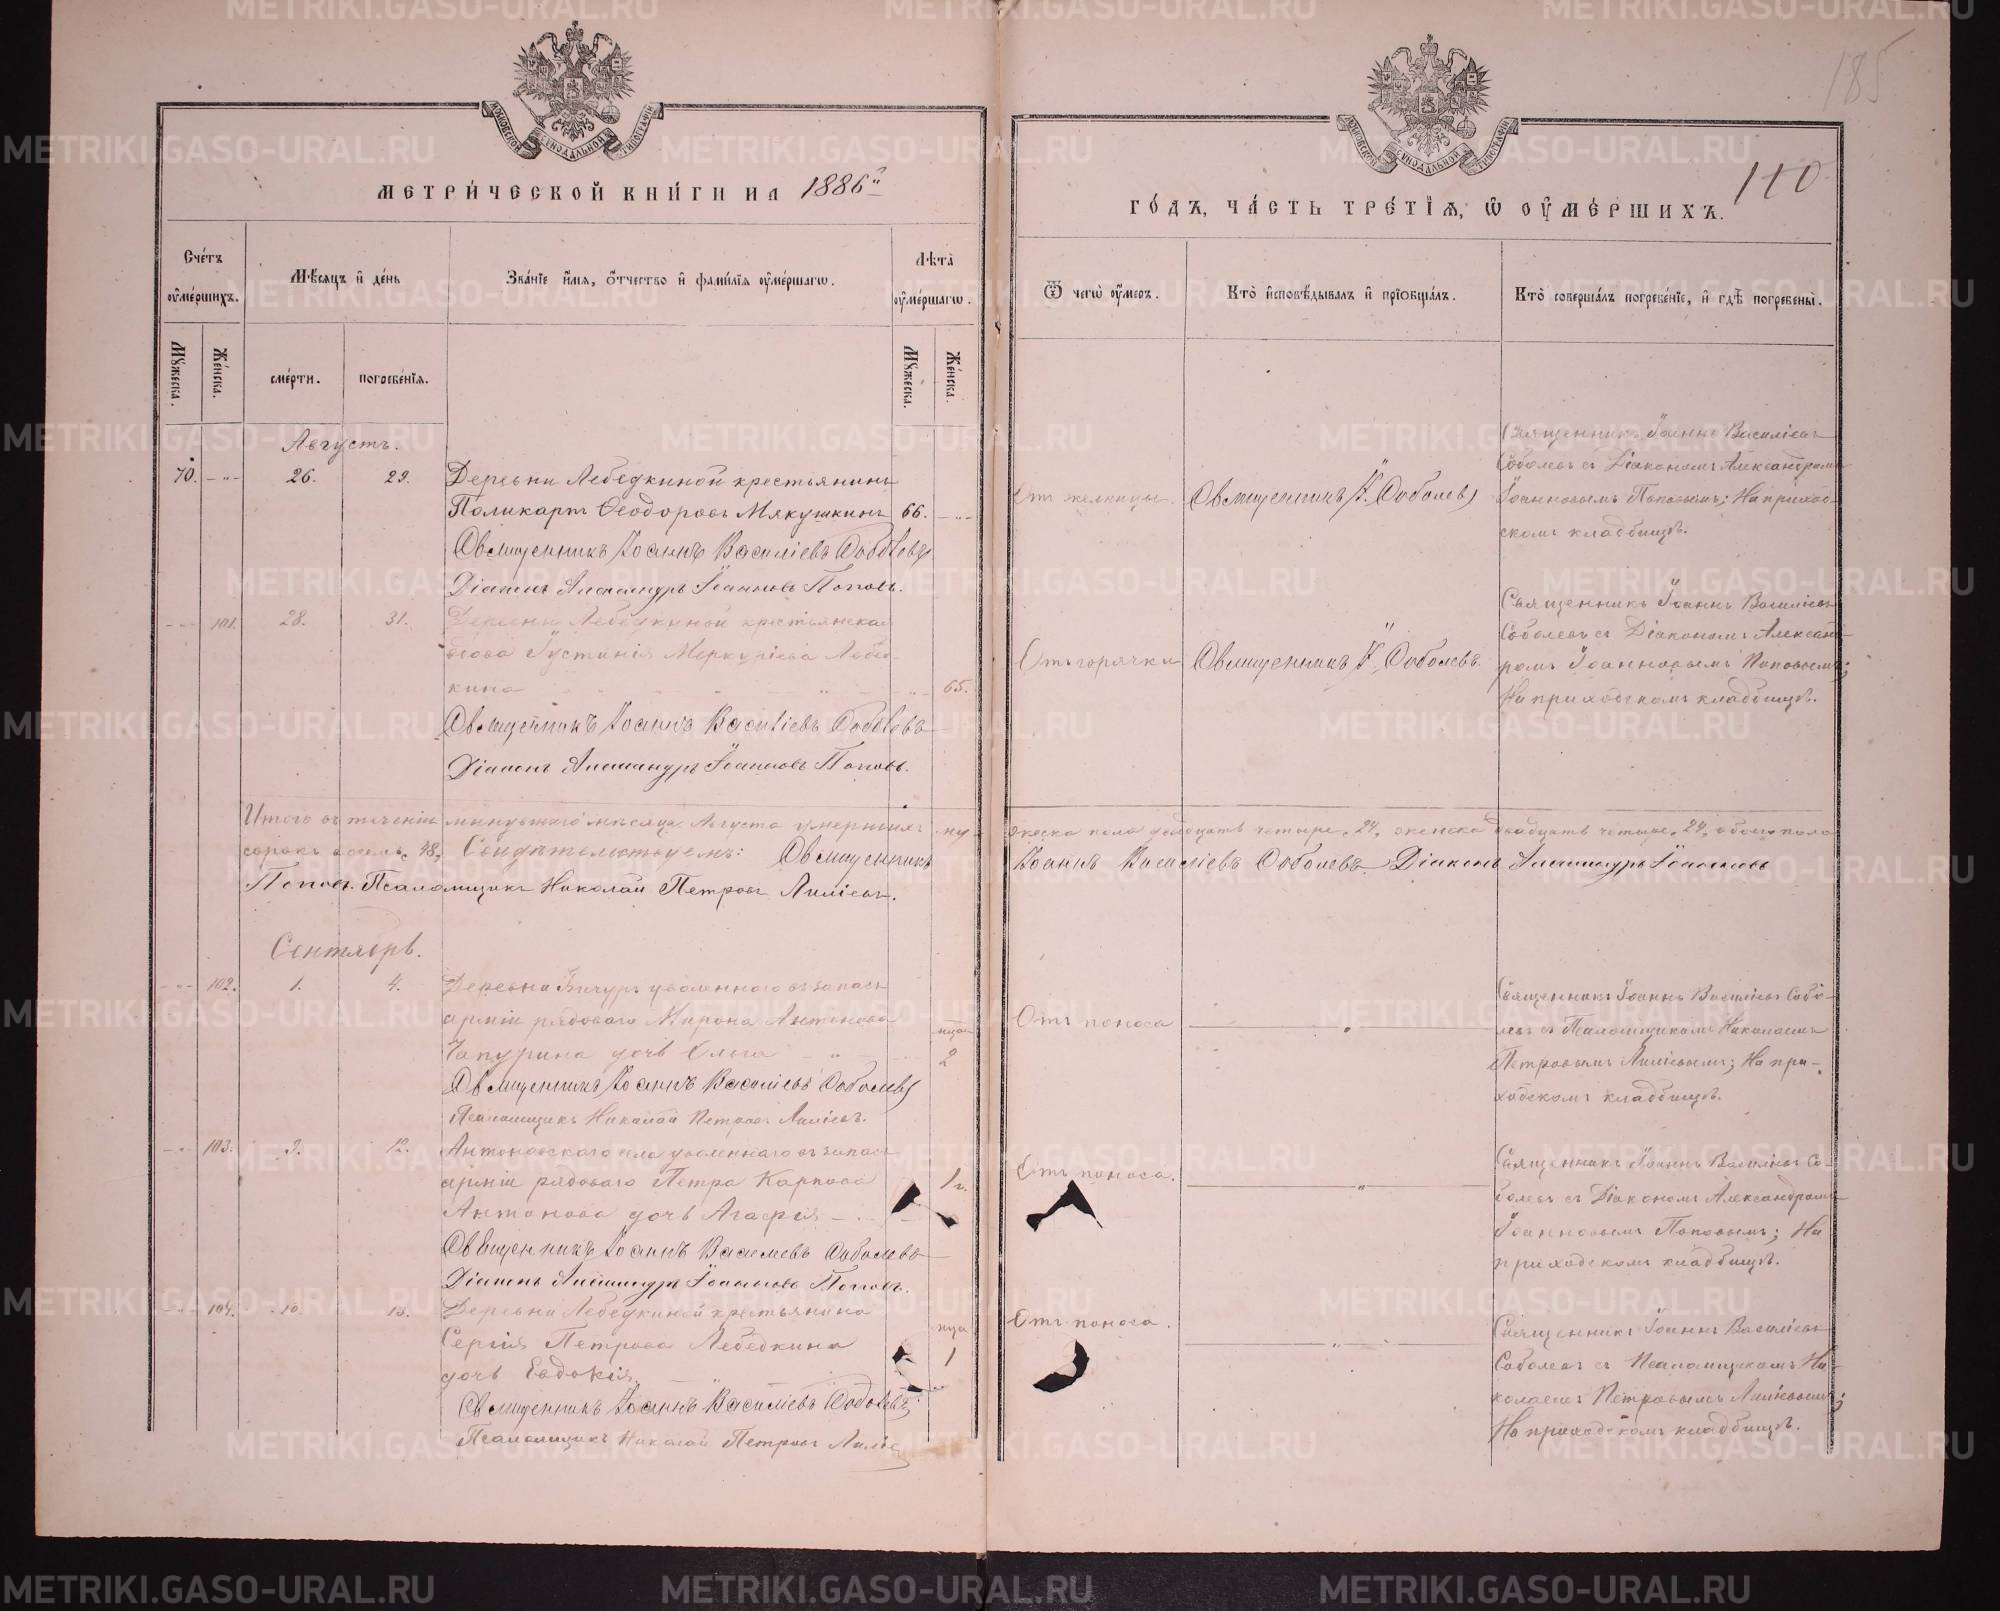 185
110
МЕТРИ́ЧЕСКОЙ КНИ́ГИ НА 1886й
ГО́ДЪ, ЧА́СТЬ ТРЕ́ТІѦ, Ѡ ОУ҆МЕ́РШИХЪ.
Сче́тъ оу҆ме́ршихъ.
Мѣ́сяцъ и҆ де́нь
Зва́нїе и҆́мя, ѻ҆́тчество и҆ фами́лїя оу҆ме́ршагѡ.
Лѣ́та оу҆ме́ршагѡ.
Ѿ чегѡ̀ оу҆́меръ.
Кто̀ и҆сповѣ́дывалъ и҆ прїѡбща́лъ.
Кто̀ соверша́лъ погребе́нїе, и҆ гдѣ̀ погребены̀.
Мꙋ́жеска.
Же́нска.
сме́рти.
погребе́нїя.
Мꙋ́жеска.
Же́нска.
Августъ.
70. 26. 29. Деревни Лебедкиной крестьянинъ
Поликарпъ Ѳеодоровъ Мякушкинъ 66.
Священникъ Іоаннъ Василіевъ Соболевъ
Діаконъ Александръ Іоанновъ Поповъ.
Отъ желтицы.
Священникъ І. Соболевъ
Священникъ Іоаннъ Василіевъ
Соболевъ съ Діакономъ Александромъ
Іоанновымъ Поповымъ; На приход-
скомъ кладбищѣ.
101. 28. 31. Деревни Лебедкиной крестьянская
вдова Іустинія Меркуріева Лебед-
кина 65.
Священникъ Іоаннъ Василіевъ Соболевъ
Діаконъ Александръ Іоанновъ Поповъ.
Отъ горячки
Священникъ І. Соболевъ.
Священникъ Іоаннъ Василіевъ
Соболевъ съ Діакономъ Алексан-
ромъ Іоанновымъ Поповымъ;
На приходскомъ кладбищѣ.
Итого въ теченіи минувшаго мѣсяца Августа умершихъ му-
жеска пола двадцать четыре, 24, женска двадцать четыре, 24, обоего пола
сорокъ восемь, 48, Свидѣтельствуемъ: Священникъ
Іоаннъ Василіевъ Соболевъ. Діаконъ Александръ Іоанновъ
Поповъ. Псаломщикъ Николай Петровъ Лиліевъ.
Сентябрь.
102. 1. 4. Деревни Бичуръ уволеннаго въ запасъ
арміи рядоваго Мирона Антонова
Чапурина дочь Ольга 2
Священникъ Іоаннъ Василіевъ Соболевъ
Псаломщикъ Николай Петровъ Лиліевъ.
Отъ поноса
Священникъ Іоаннъ Василіевъ Собо-
левъ съ Псаломщикомъ Николаемъ
Петровымъ Лиліевымъ; На при-
ходскомъ кладбищѣ.
103. 9. 12. Антоновскаго села уволеннаго въ запасъ
арміи рядоваго Петра Карпова 1 г.
Антонова дочь Агафія
Священникъ Іоаннъ Василіевъ Соболевъ
Діаконъ Александръ Іоанновъ Поповъ.
Отъ поноса.
Священникъ Іоаннъ Василіевъ Со-
болевъ съ Діакономъ Александромъ
Іоанновымъ Поповымъ; На
приходскомъ кладбищѣ.
104. 10. 13. Деревни Лебедкиной крестьянина
Сергія Петрова Лебедкина 1
дочь Евдокія.
Священникъ Іоаннъ Василіевъ Соболевъ
Псаломщикъ Николай Петровъ Лиліевъ
Отъ поноса.
Священникъ Іоаннъ Василіевъ
Соболевъ съ Псаломщикомъ Ни-
колаемъ Петровымъ Лиліевымъ;
На приходскомъ кладбищѣ.
METRIKI.GASO-URAL.RU